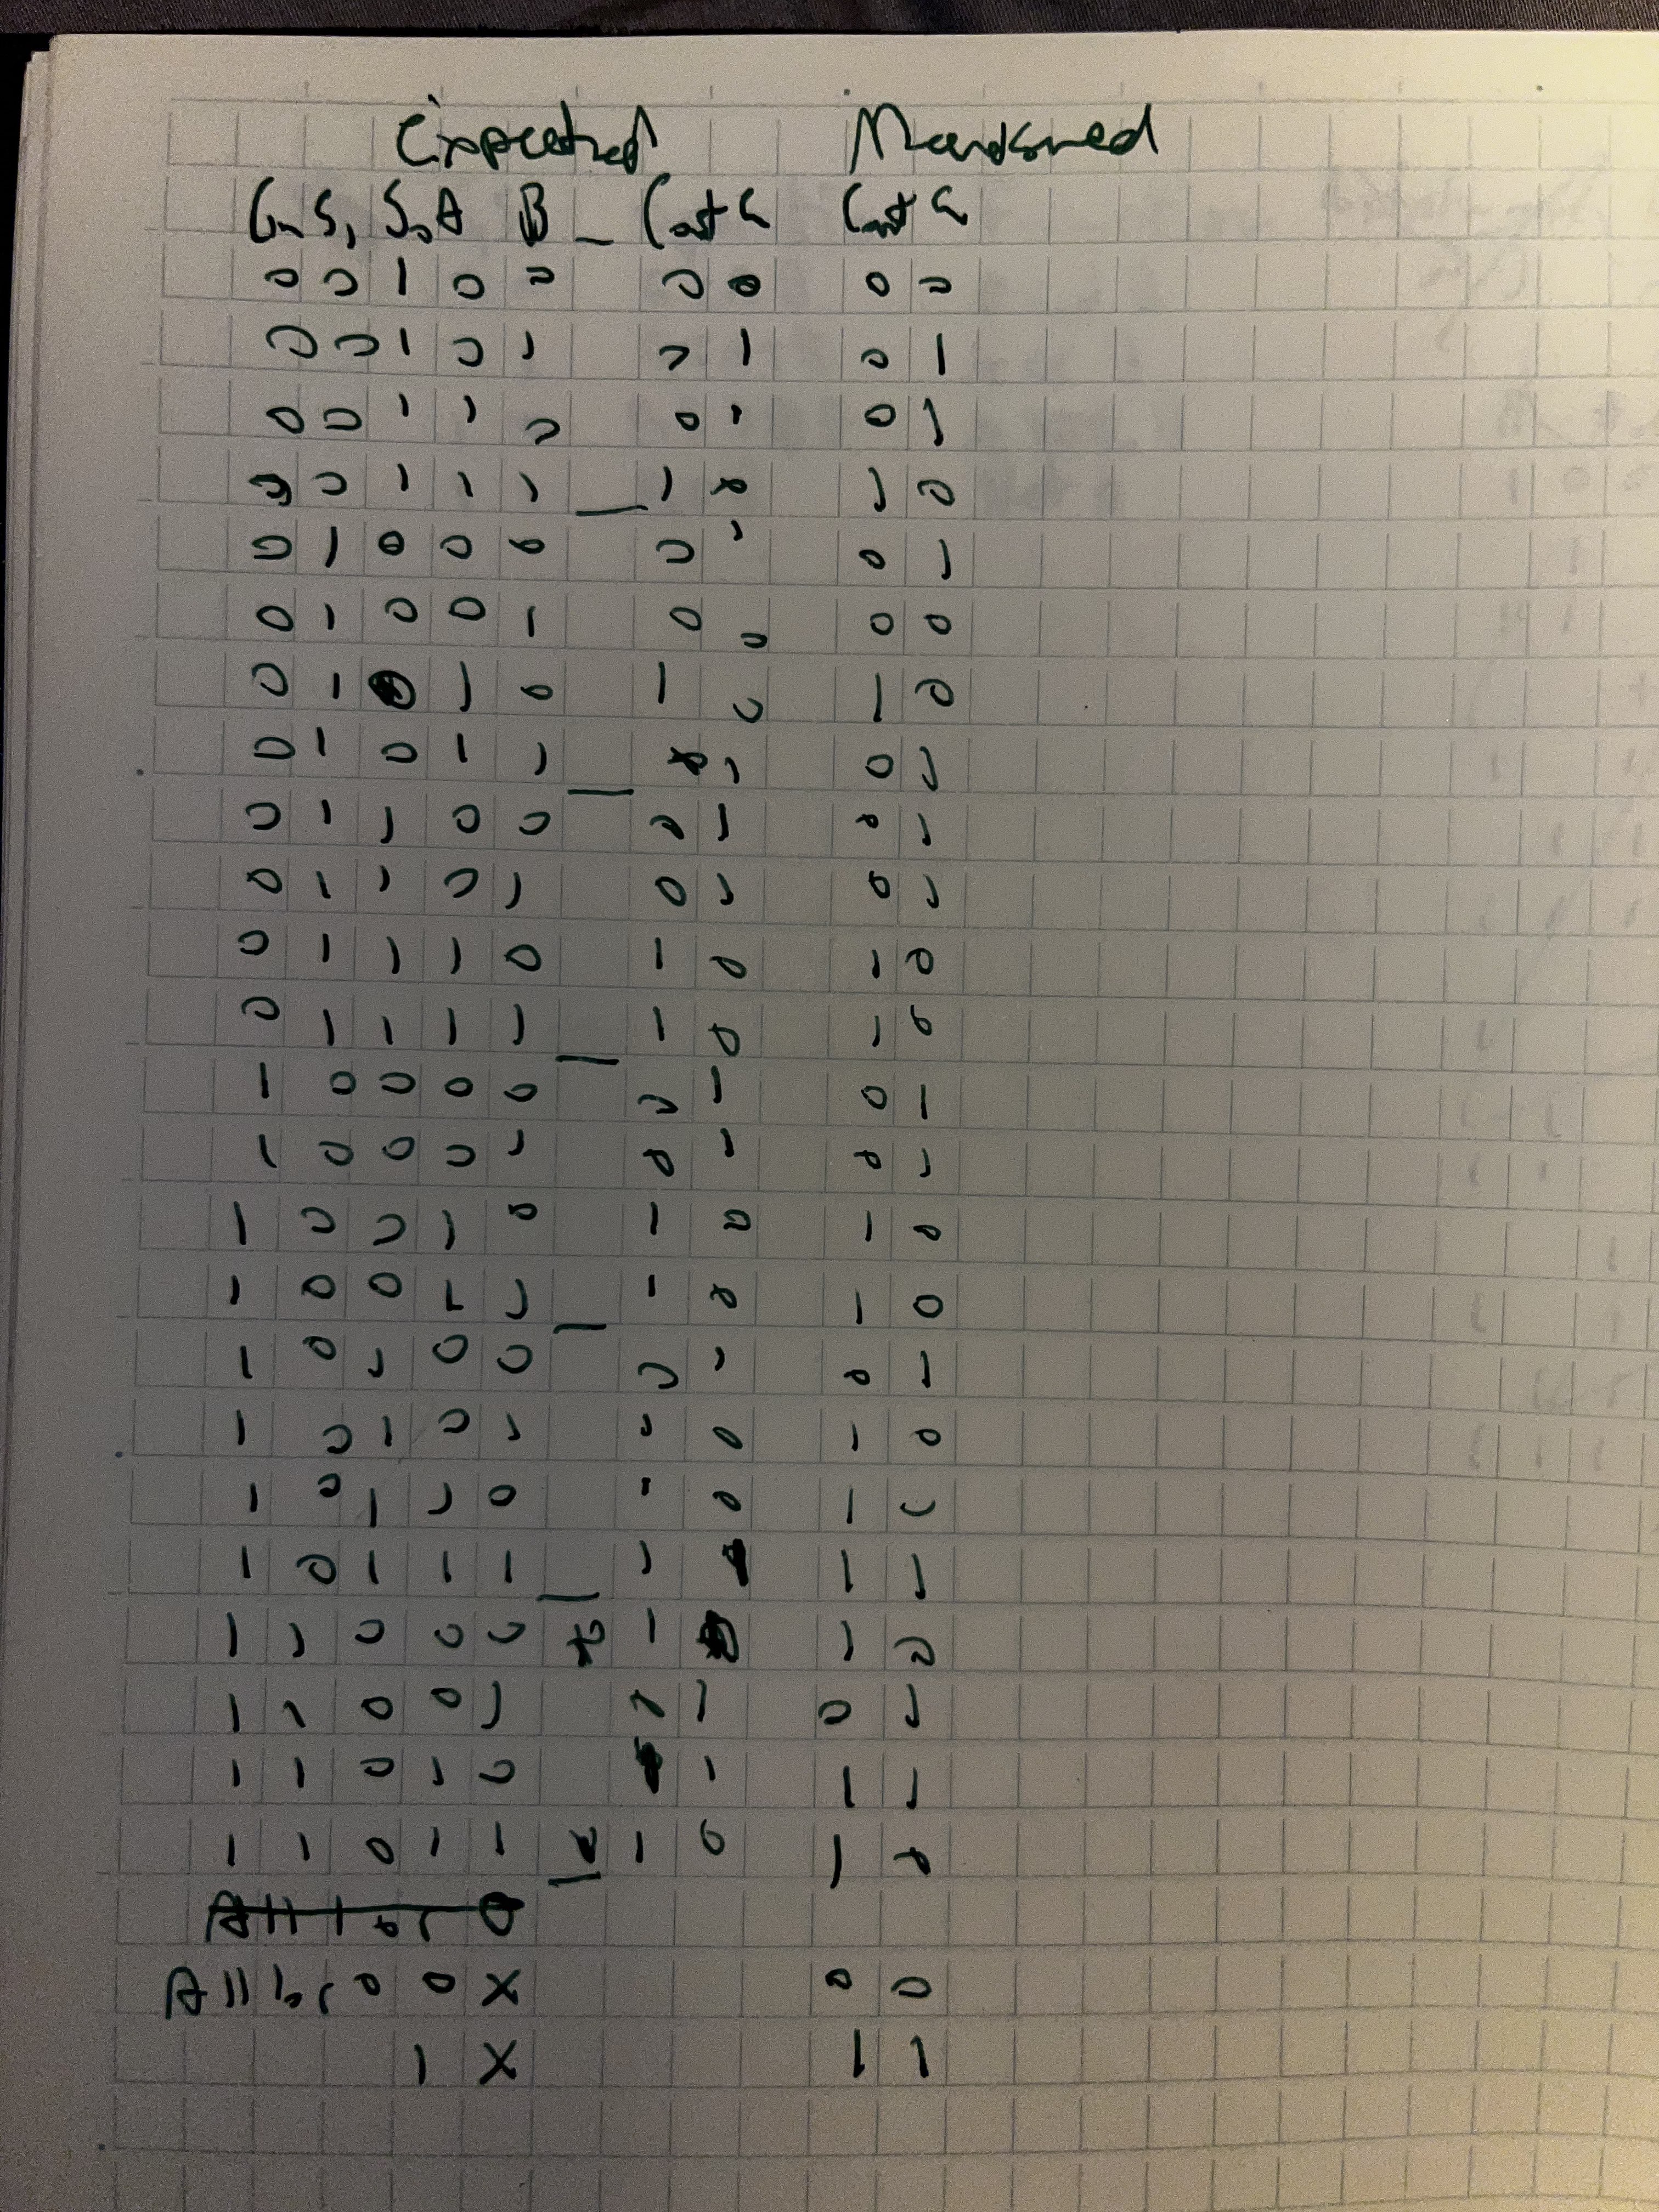 Expected Measured
Cin S1 S0 A B Cout G Cout G
0 0 1 0 0 0 0 0 0
0 0 1 0 1 0 1 0 1
0 0 1 1 0 0 1 0 1
0 0 1 1 1 1 0 1 0
0 1 0 0 0 0 1 0 1
0 1 0 0 1 0 0 0 0
0 1 0 1 0 1 0 1 0
0 1 0 1 1 0 1 0 1
0 1 1 0 0 0 1 0 1
0 1 1 0 1 0 1 0 1
0 1 1 1 0 1 0 1 0
0 1 1 1 1 1 0 1 0
1 0 0 0 0 0 1 0 1
1 0 0 0 1 0 1 0 1
1 0 0 1 0 1 0 1 0
1 0 0 1 1 1 0 1 0
1 0 1 0 0 0 1 0 1
1 0 1 0 1 1 0 1 0
1 0 1 1 0 1 0 1 0
1 0 1 1 1 1 1 1 1
1 1 0 0 0 1 0 1 0
1 1 0 0 1 0 1 0 1
1 1 0 1 0 1 1 1 1
1 1 0 1 1 1 0 1 0
All 1 or 0
All 0 0 X 0 0
1 X 1 1